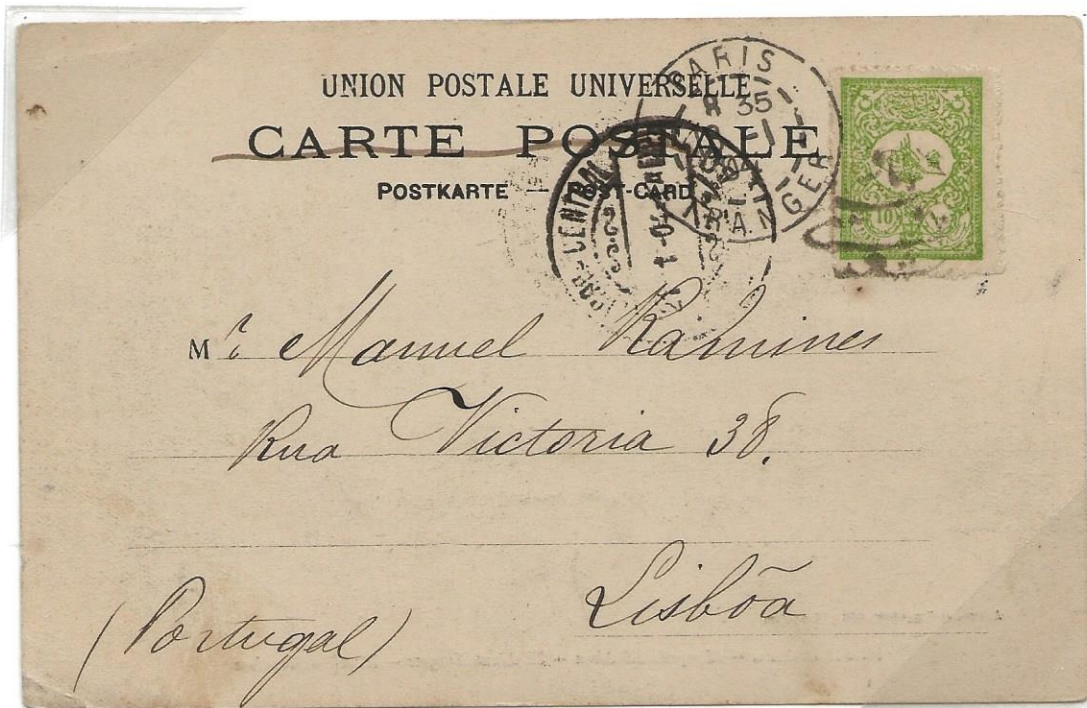 UNION POSTALE UNIVERSELLE
CARTE POSTALE
POSTKARTE — POST-CARD
PARIS
8 35
ETRANGER
CENTRAL
10
Mr Manuel Ramires
Rua Victoria 38.
Lisbõa
(Portugal)